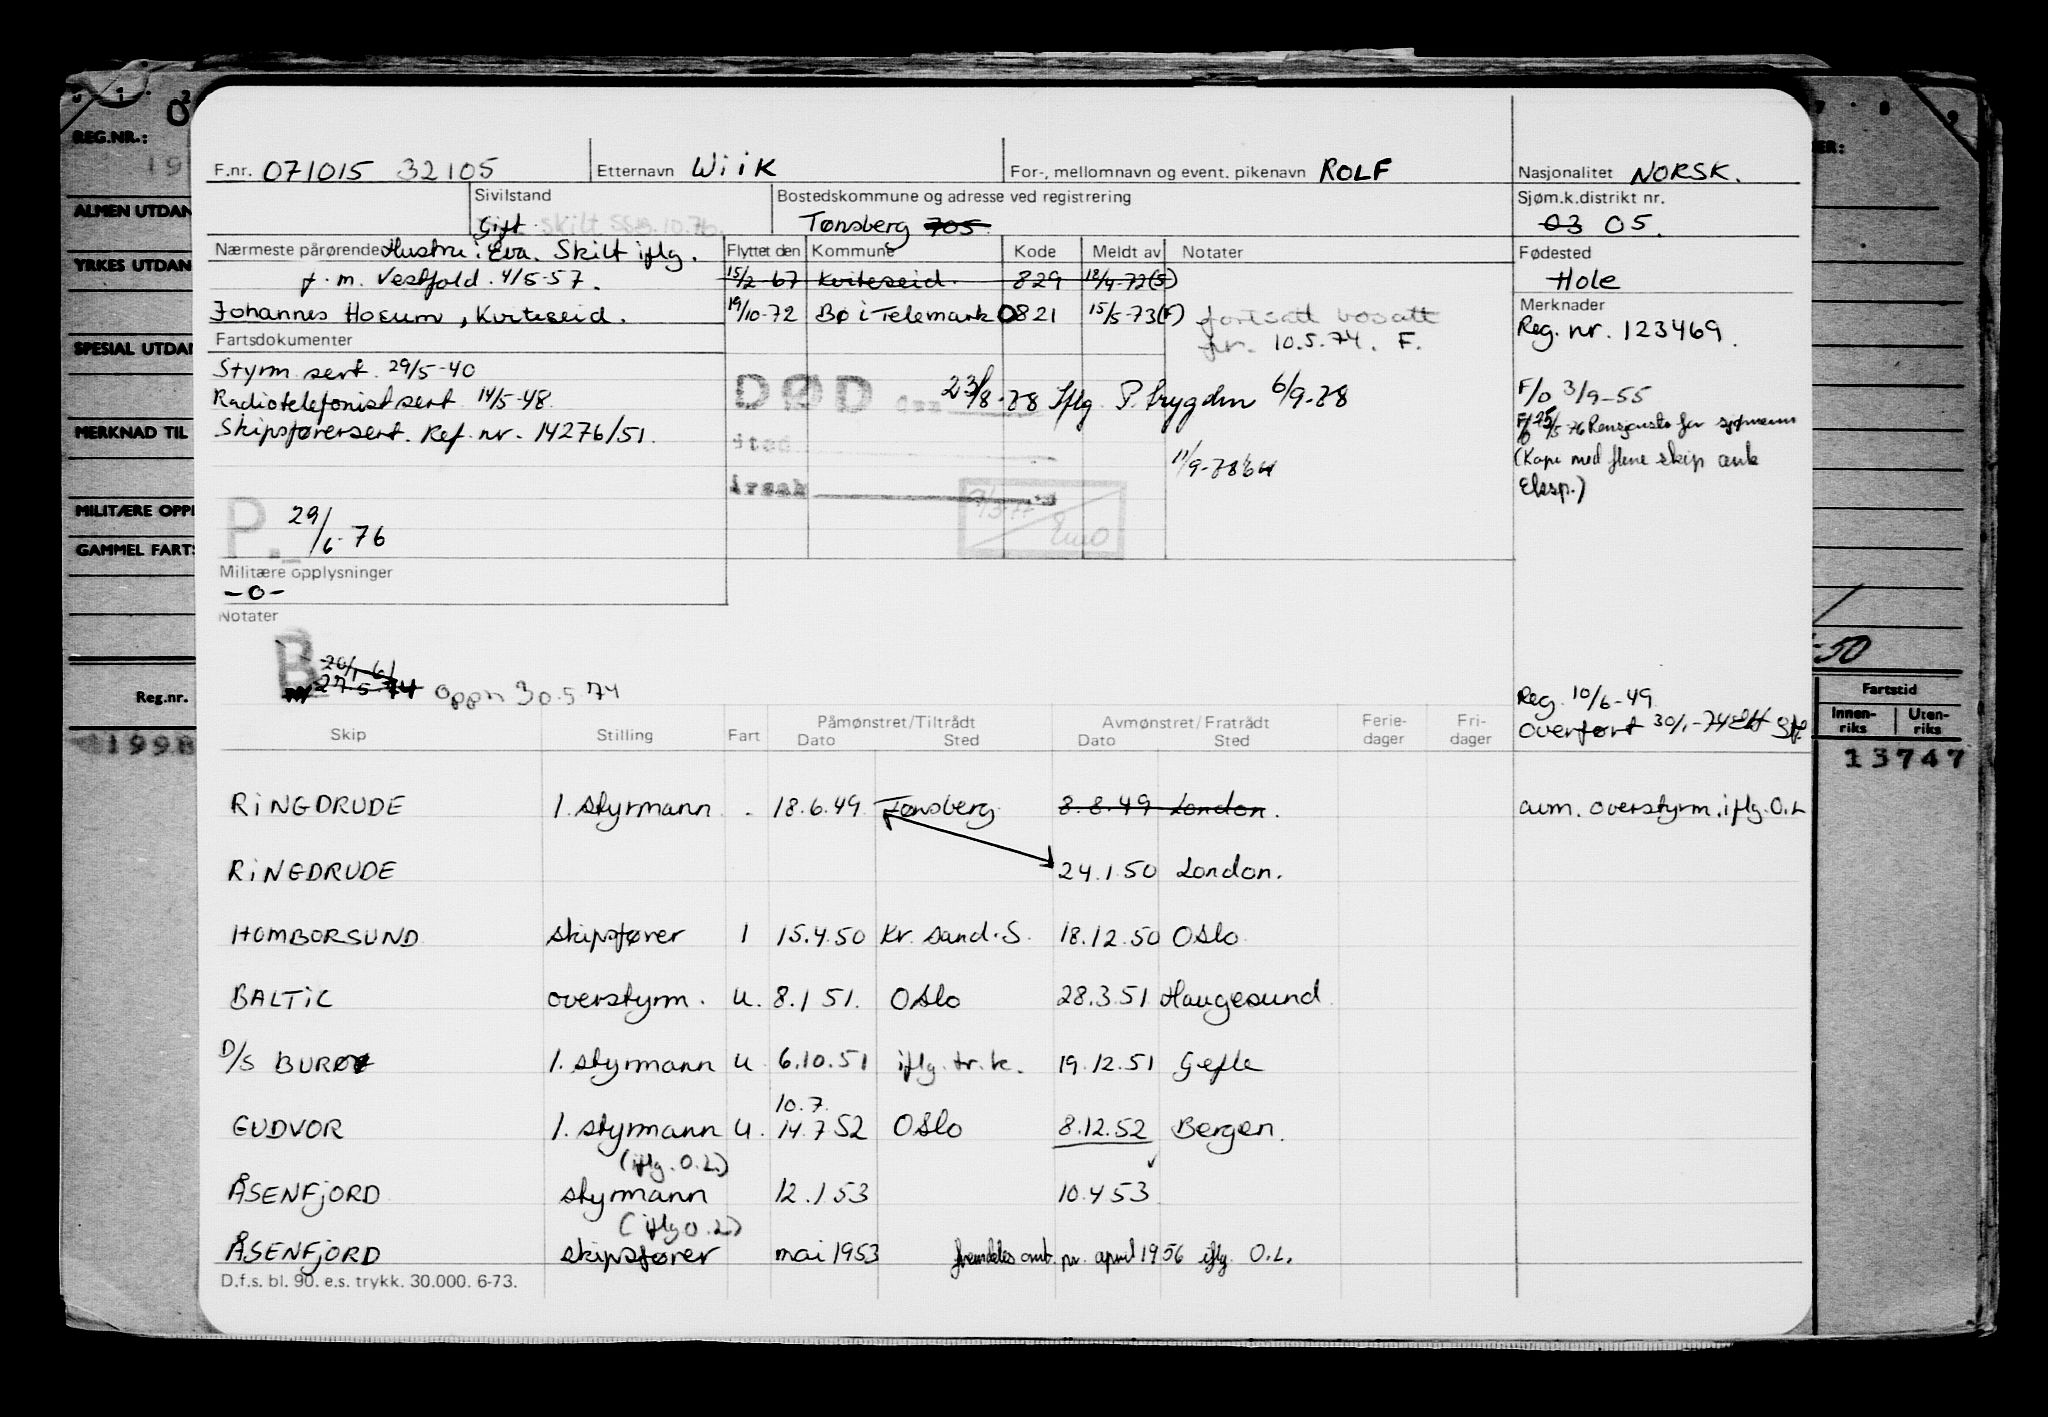 REG.NR.:
F.nr. 071015 32105 Etternavn WiiK For-, mellomnavn og event. pikenavn ROLF Nasjonalitet NORSK.
ALMEN UTDAN
Sivilstand Bostedskommune og adresse ved registrering Sjøm.k.distrikt nr.
Gift. Skilt SSB.10.76. Tønsberg 705 03 05.
Nærmeste pårørende Hustru: Eva. Skilt iflg. Flyttet den Kommune Kode Meldt av Notater Fødested
YRKES UTDAN
f.m. Vestfold. 4/5-57. 15/2-67 Kviteseid. 829 18/4-72(S) Hole
Johannes Hosum, Kviteseid. 19/10-72 Bø i Telemark 0821 15/5-73(F) fortsatt bosatt
Merknader
Reg. nr. 123469.
pr. 10.5.74. F.
SPESIAL UTDAN
Fartsdokumenter
Styrm. sert. 29/5-40
Radiotelefonistsert 14/5-48.
Skipsførersert. Ref. nr. 14276/51.
DØD den 23/8-78 Iflg. P. trygden 6/9-78
sted
årsak
11/9-78
F/o 3/9-55
25/5-76 Pensjonstr for sjømenn
(Kopi med flere skip enk
Eksp.)
MERKNAD TIL
MILITÆRE OPPL
GAMMEL FARTS
P. 29/6-76
Militære opplysninger
-0-
Notater
B 20/1-61
27.5.74 Oppn 30.5.74
-50
Reg. 10/6-49
Overført 30/1-74
Reg.nr.
Skip Stilling Fart Påmønstret/Tiltrådt Avmønstret/Fratrådt Ferie-dager Fri-dager
Dato Sted Dato Sted
Fartstid
Innen-riks Uten-riks
1998
13747
RiNGDRUDE 1. styrmann. - 18.6.49 Tønsberg 8.8.49 London. avm. overstyrm. iflg. O.L
RiNGDRUDE 24.1.50 London.
HOMBORSUND skipsfører I 15.4.50 Kr. sand.S. 18.12.50 Oslo
BALTiC overstyrm. u. 8.1 51. Oslo 28.3.51 Haugesund
D/S BURØY 1. styrmann u 6.10.51 iflg. tr.k. 19.12.51 Gefle
10.7.
GUDVOR 1. styrmann u. 14.7 52 Oslo 8.12.52 Bergen.
(iflg. O.L.)
ÅSENFJORD styrmann 12.1 53 10.4 53
(iflg O.L.)
ÅSENFJORD skipsfører mai 1953 fremdeles omb. pr. april 1956 iflg. O.L.
D.f.s. bl. 90. e.s. trykk. 30.000. 6-73.